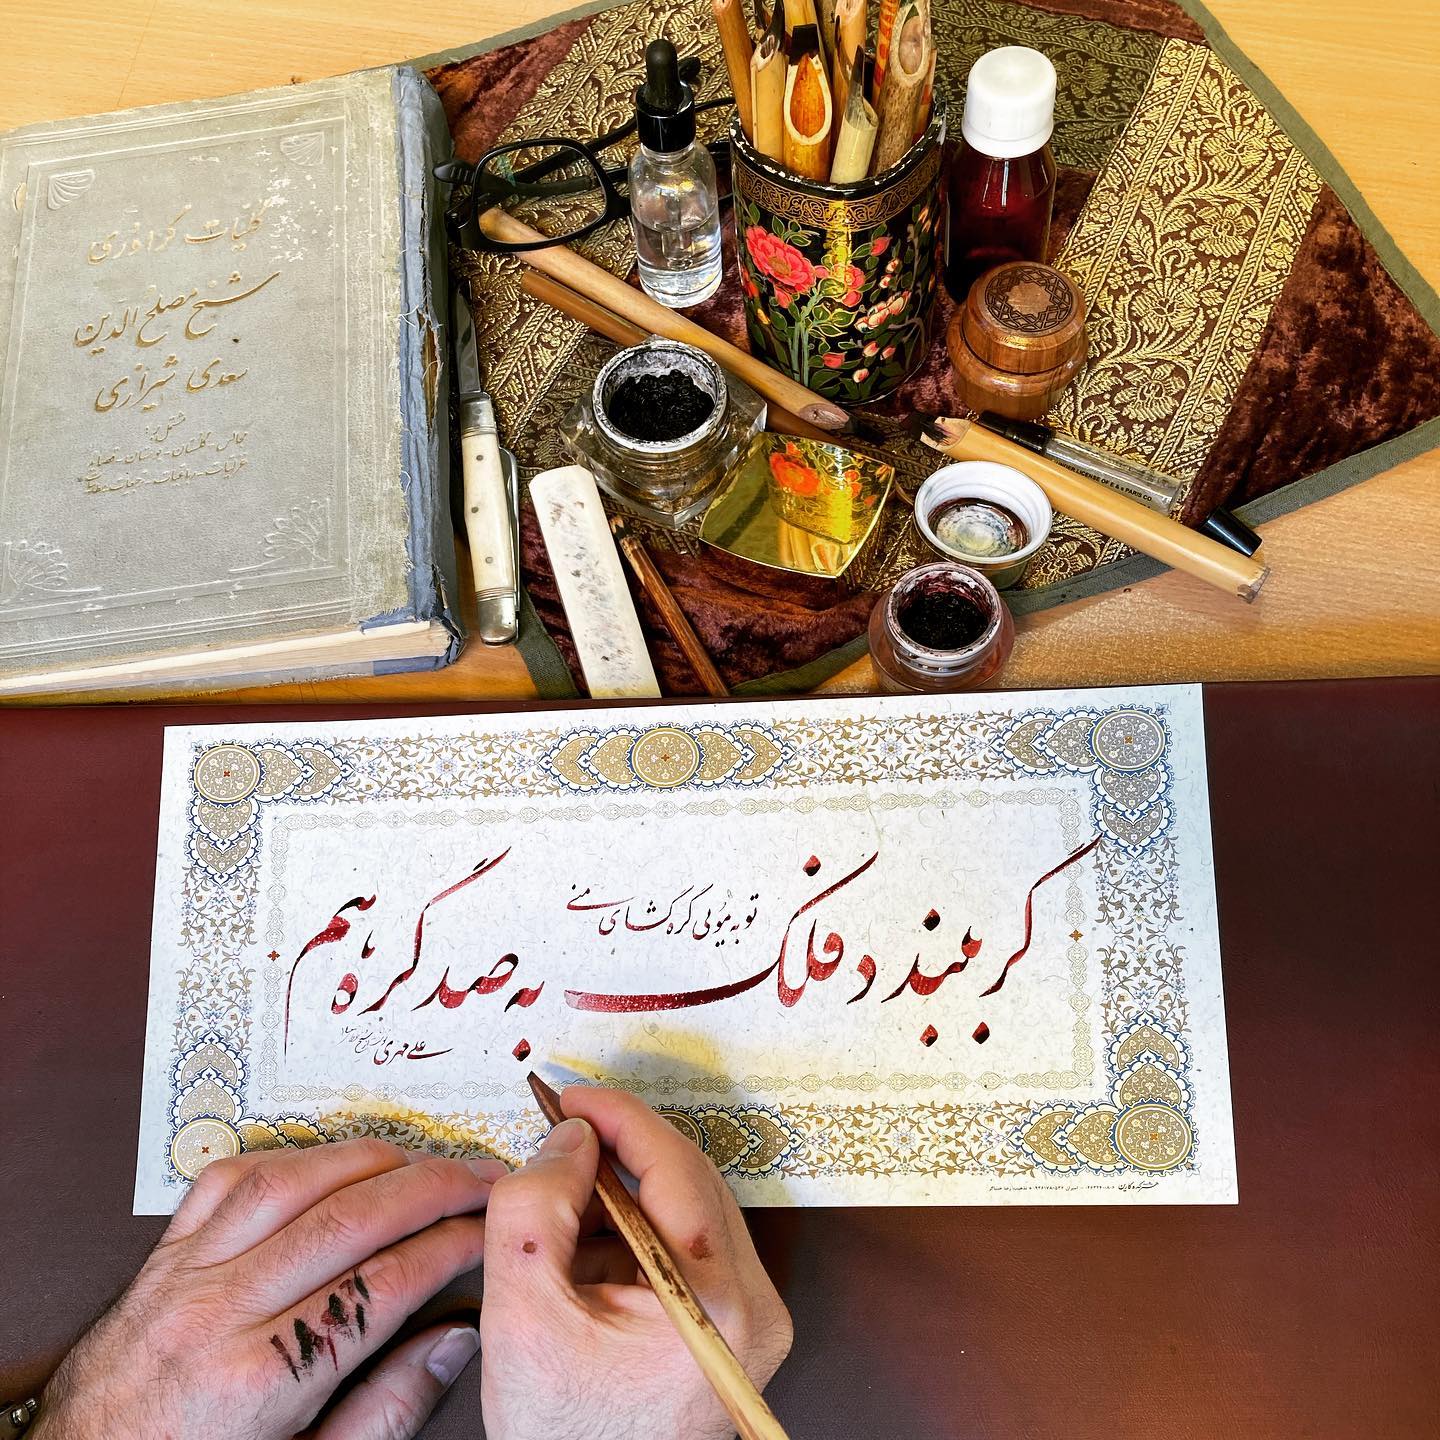 کلیات گراوری
شیخ مصلح الدین
سعدی شیرازی
مشتمل بر:
مجالس - گلستان - بوستان - قصاید
غزلیات - رباعیات -
UNDER LICENSE OF E & × PARIS CO
گر ببندد فلک به صد گره هم
تو به مویی گره گشای منی
علی مهری